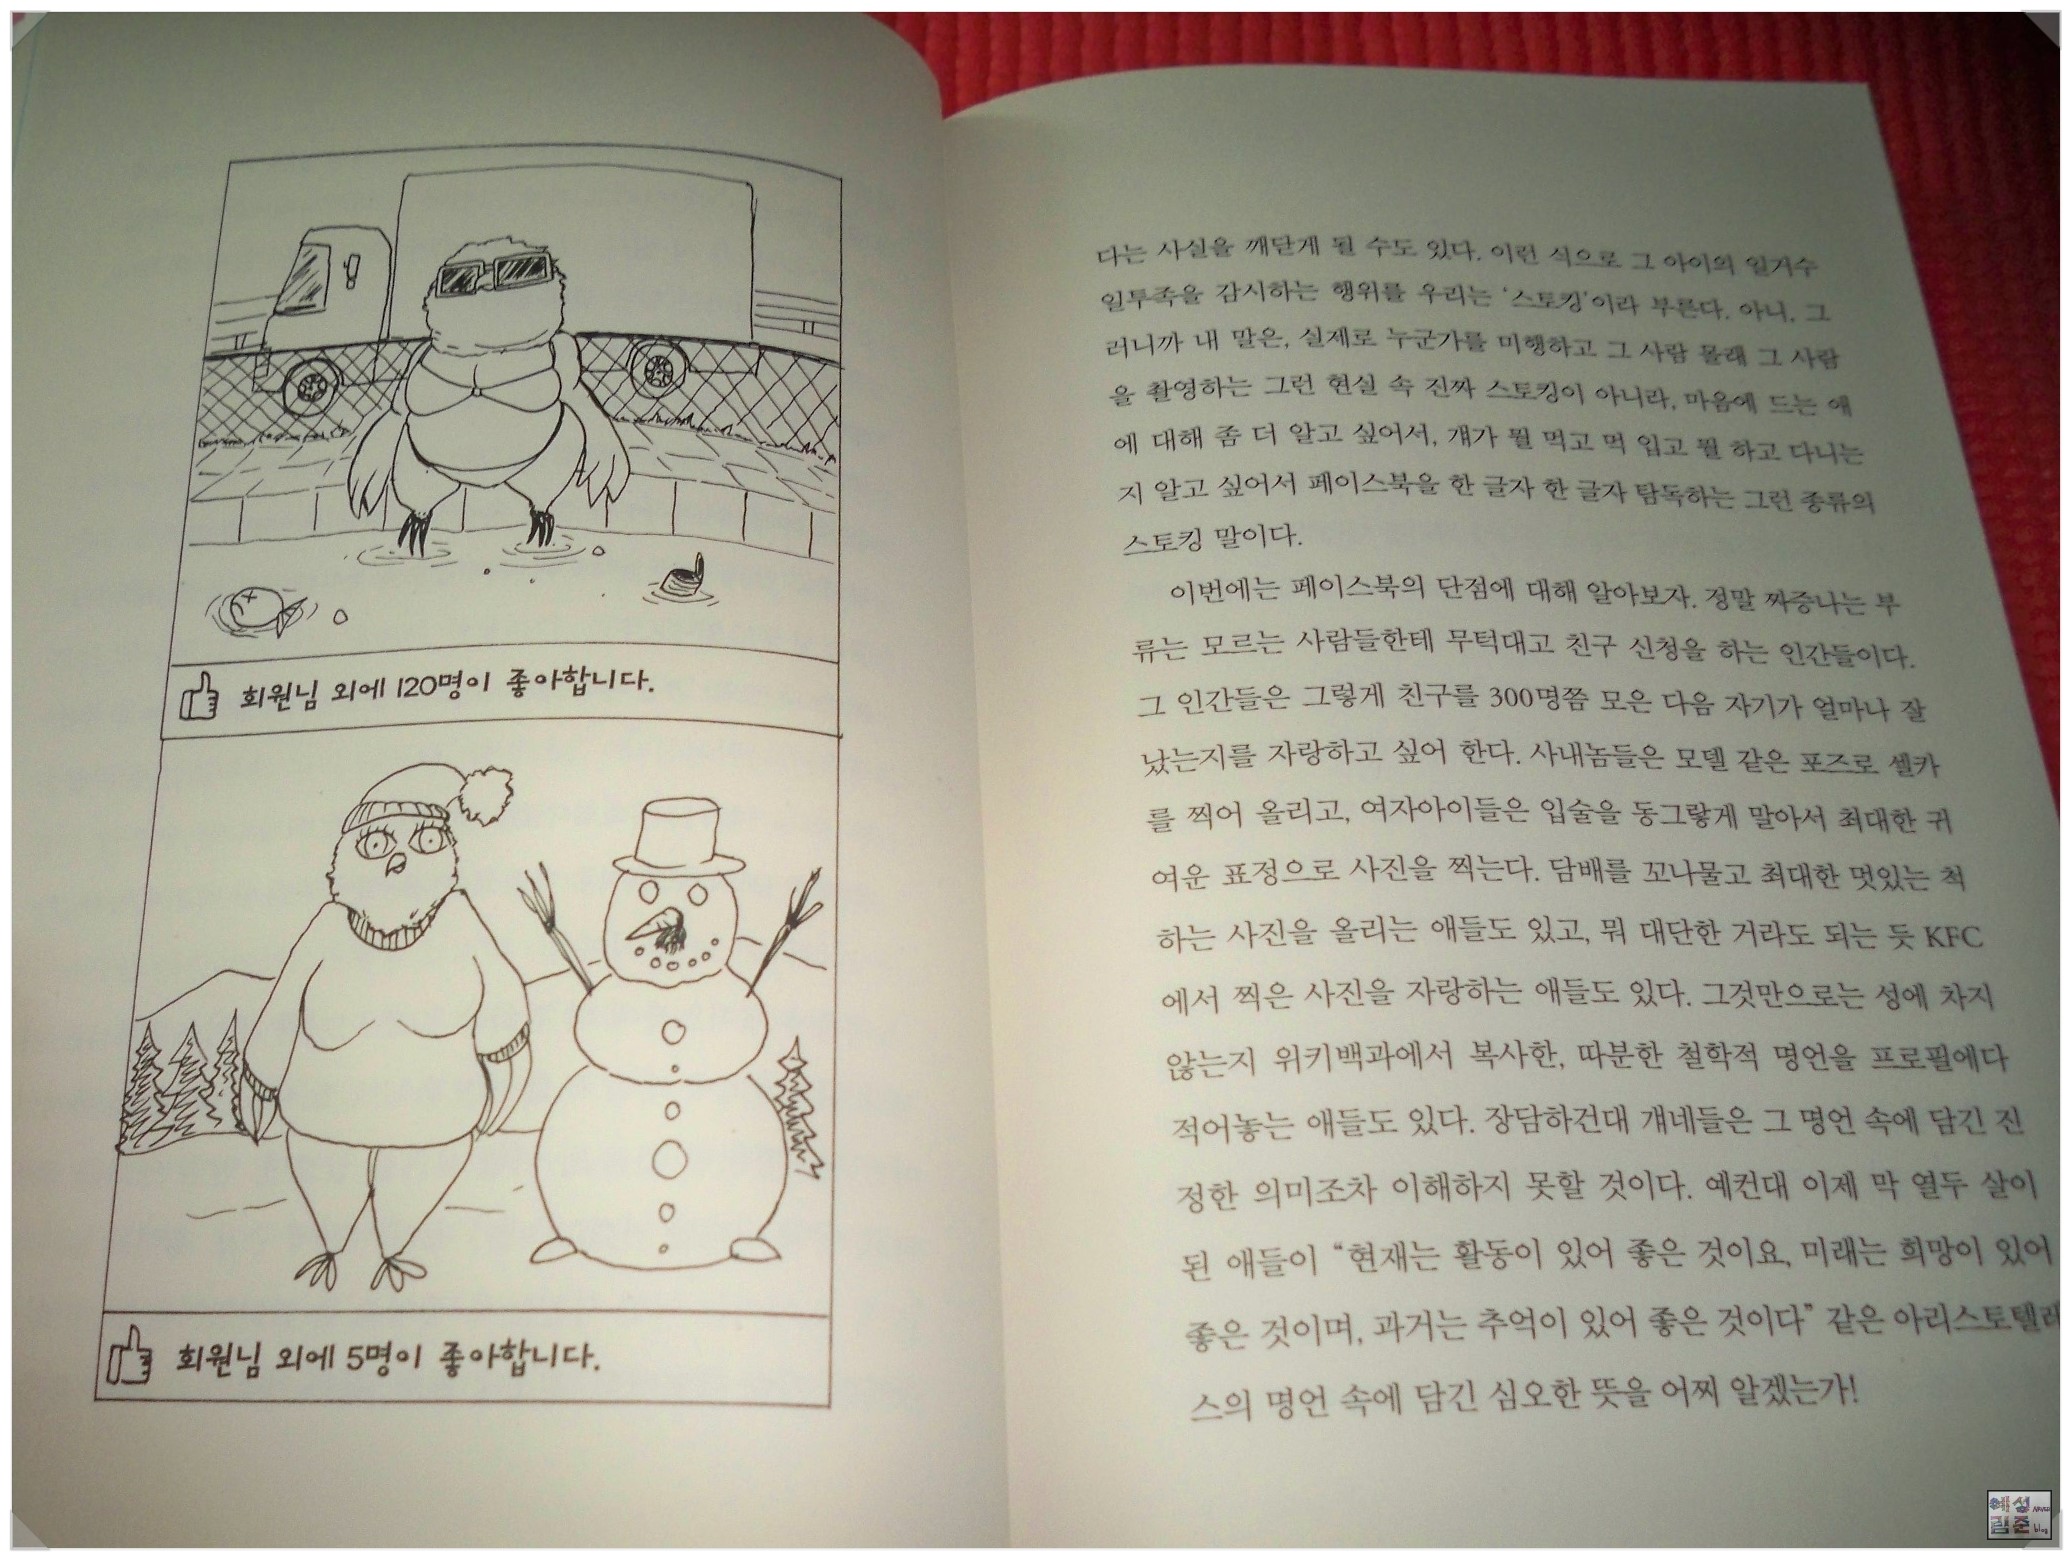 회원님 외에 120명이 좋아합니다.
회원님 외에 5명이 좋아합니다.
다는 사실을 깨닫게 될 수도 있다. 이런 식으로 그 아이의 일거수
일투족을 감시하는 행위를 우리는 '스토킹'이라 부른다. 아니, 그
러니까 내 말은, 실제로 누군가를 미행하고 그 사람 몰래 그 사람
을 촬영하는 그런 현실 속 진짜 스토킹이 아니라, 마음에 드는 애
에 대해 좀 더 알고 싶어서, 걔가 뭘 먹고 먹 입고 뭘 하고 다니는
지 알고 싶어서 페이스북을 한 글자 한 글자 탐독하는 그런 종류의
스토킹 말이다.
이번에는 페이스북의 단점에 대해 알아보자. 정말 짜증나는 부
류는 모르는 사람들한테 무턱대고 친구 신청을 하는 인간들이다.
그 인간들은 그렇게 친구를 300명쯤 모은 다음 자기가 얼마나 잘
났는지를 자랑하고 싶어 한다. 사내놈들은 모델 같은 포즈로 셀카
를 찍어 올리고, 여자아이들은 입술을 동그랗게 말아서 최대한 귀
여운 표정으로 사진을 찍는다. 담배를 꼬나물고 최대한 멋있는 척
하는 사진을 올리는 애들도 있고, 뭐 대단한 거라도 되는 듯 KFC
에서 찍은 사진을 자랑하는 애들도 있다. 그것만으로는 성에 차지
않는지 위키백과에서 복사한, 따분한 철학적 명언을 프로필에다
적어놓는 애들도 있다. 장담하건대 걔네들은 그 명언 속에 담긴 진
정한 의미조차 이해하지 못할 것이다. 예컨대 이제 막 열두 살이
된 애들이 “현재는 활동이 있어 좋은 것이요, 미래는 희망이 있어
좋은 것이며, 과거는 추억이 있어 좋은 것이다” 같은 아리스토텔레
스의 명언 속에 담긴 심오한 뜻을 어찌 알겠는가!
혜성
림준
blog